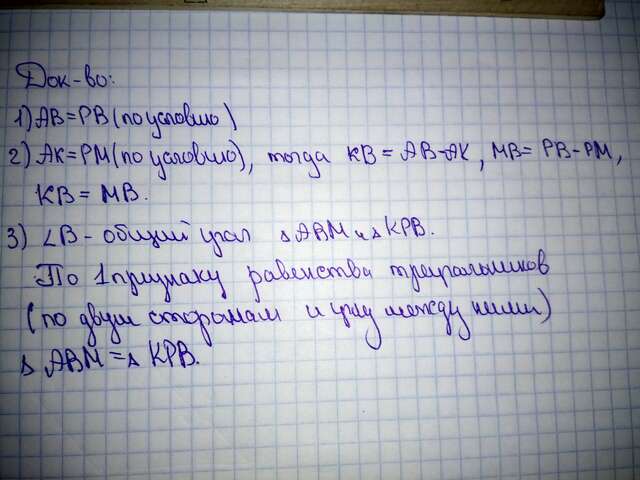 Док-во:
1) AB=PB (по условию)
2) AK=PM (по условию), тогда KB=AB-AK, MB=PB-PM,
KB=MB.
3) ∠B - общий угол △ABM и △KPB.
По 1 признаку равенства треугольников
(по двум сторонам и углу между ними)
△ABM=△KPB.